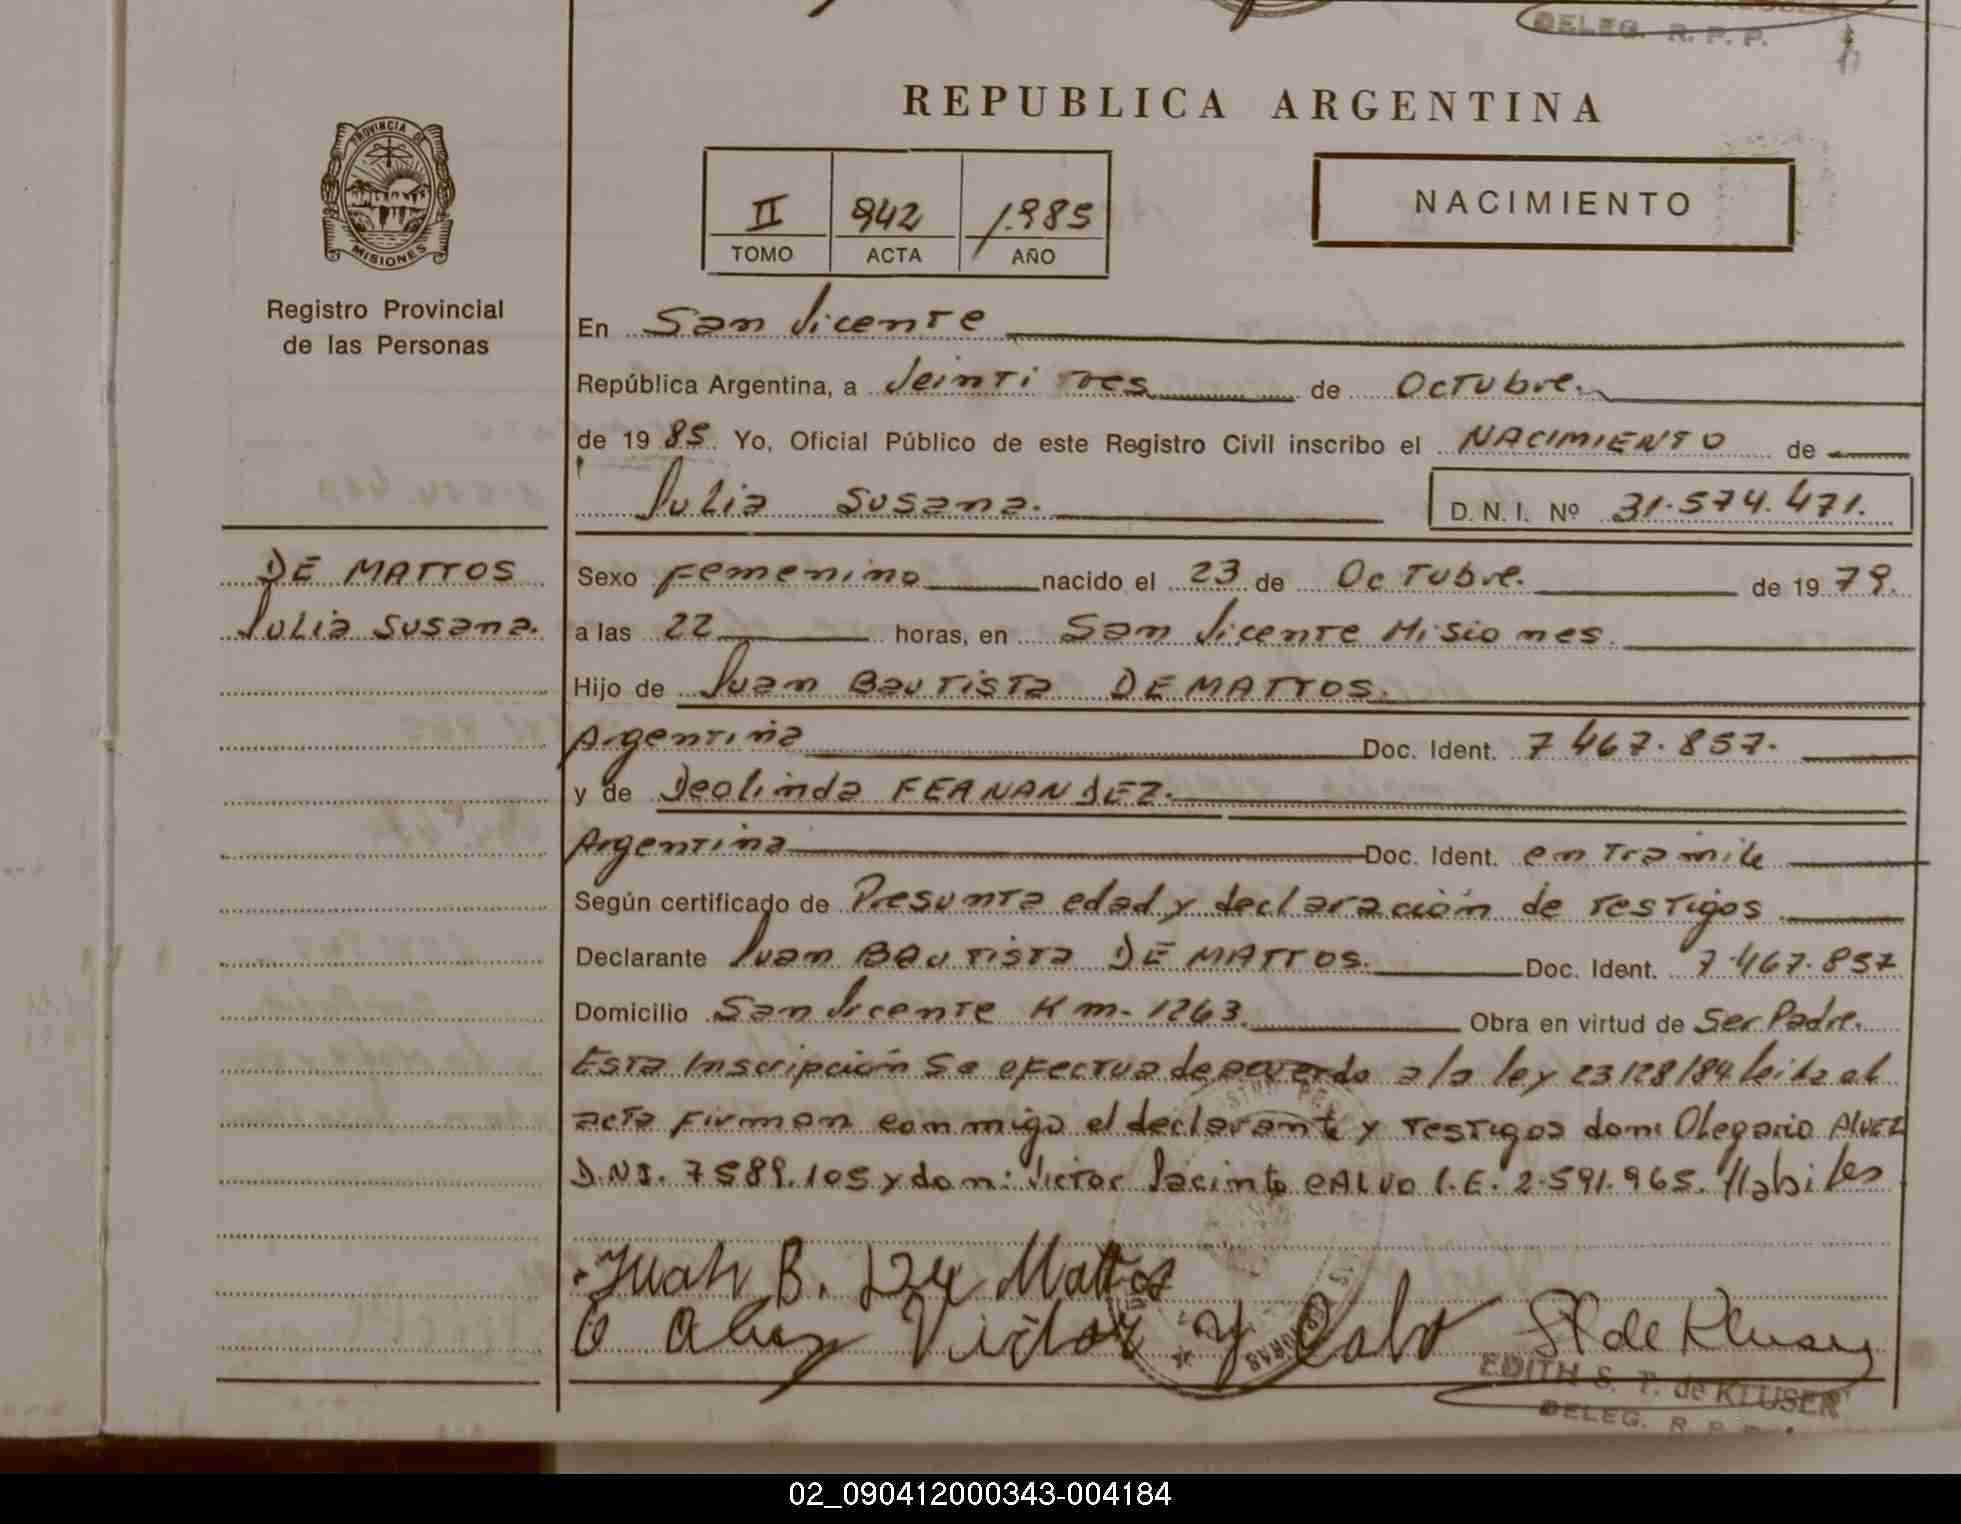 DELEG. R. P. P.
REPUBLICA ARGENTINA
PROVINCIA DE
MISIONES
Registro Provincial
de las Personas
II 942 1.985
TOMO ACTA AÑO
NACIMIENTO
En San Vicente
República Argentina, a Veinti tres de Octubre.
de 19 85. Yo, Oficial Público de este Registro Civil inscribo el NACIMIENTO de
Julia Susana. D. N. I. Nº 31.574.471.
DE MATTOS
Julia Susana.
Sexo Femenino nacido el 23 de Octubre. de 19 79.
a las 22 horas, en San Vicente Misiones.
Hijo de Juan Bautista DE MATTOS.
Argentina Doc. Ident. 7.467.857.
y de Deolinda FERNANDEZ.
Argentina Doc. Ident. en tramite
Según certificado de Presunta edad y declaración de testigos
Declarante Juan Bautista DE MATTOS. Doc. Ident. 7.467.857
Domicilio San Vicente Km. 1263. Obra en virtud de Ser Padre.
Esta Inscripción se efectua de acuerdo a la ley 23128/84 leida el
acta Firman conmigo el declarante y testigos don: Olegario Alvez
D.N.I. 7589.105 y don: Victor Jacinto CALVO L.E. 2.591.965. Habiles
Juan B. De Mattos
O Alvez Victor J Calvo ST de Kluser
EDITH S. T. de KLUSER
DELEG. R. P. P.
02_090412000343-004184